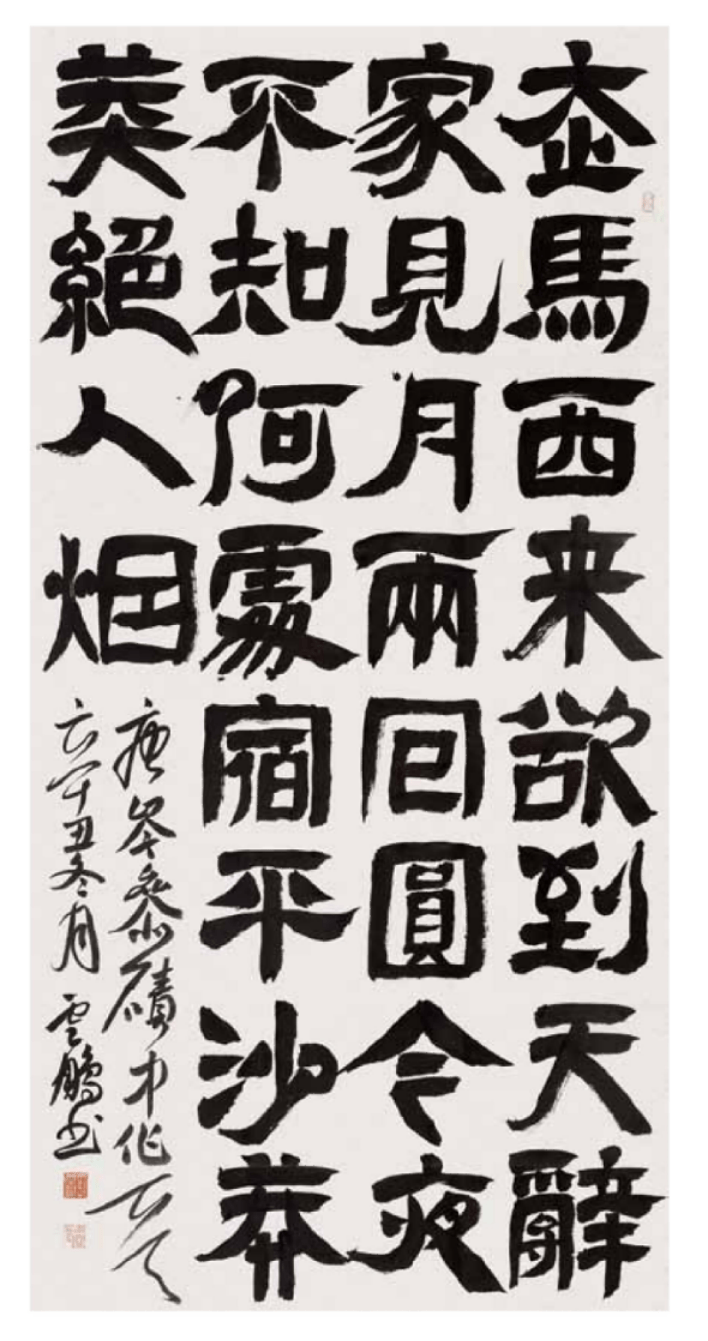 走馬西来欲到天辭
家見月兩回圓今夜
不知何處宿平沙莽
莽絕人烟
唐岑參磧中作
辛丑冬月雲鵬书